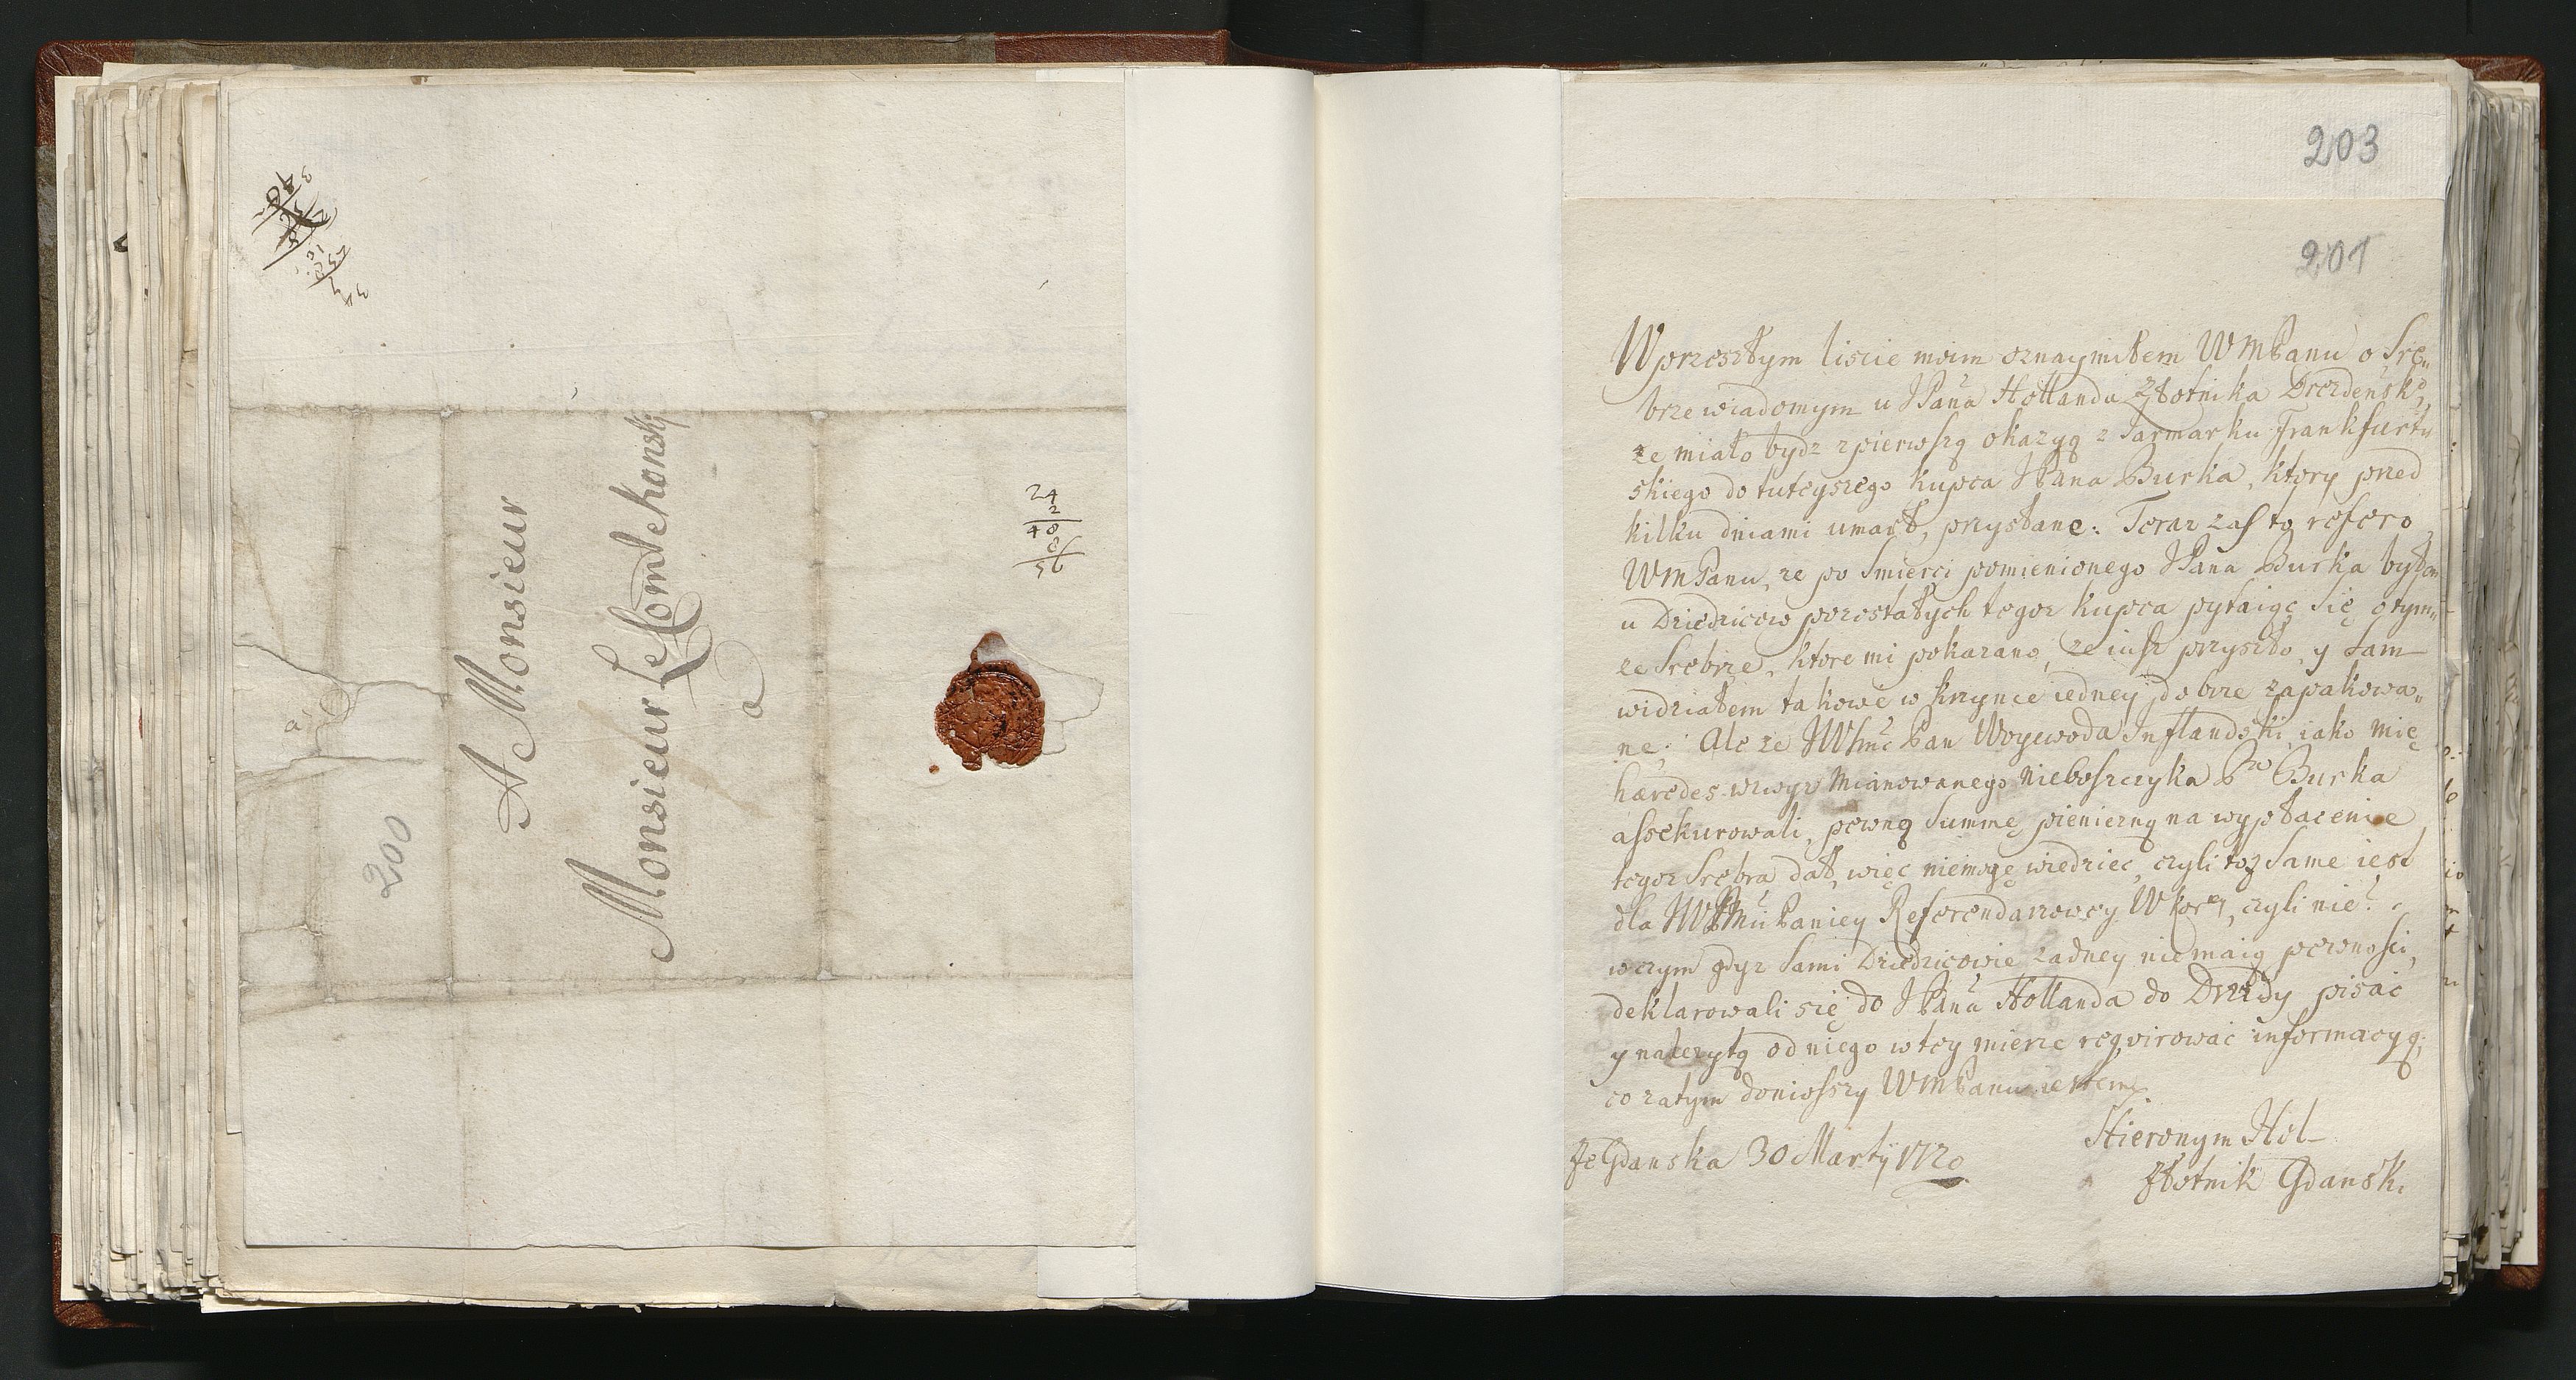 A Monsieur
Monsieur Le Comte
a
200
a
24
2
48
8
56
203
201
W przeszłym liscie moim oznaymiłem WMPanu o Sre„
brze wiadomym u JPana Hollanda Złotnika Drezdensko,
ze miało bydz z pierwszą okazyą z Jarmarku Frankfurtu
skiego do tuteyszego kupca JPana Burka, ktory przed
kilku dniami umarł, przysłane: Teraz zas to refero
WMPanu, ze po smierci pomienionego JPana Burka byłem
u Dziedzicow pozostałych tegoz kupca pytaiąc się o tym„
ze Srebrze, ktore mi pokazano, ze iusz przyszło, y sam
widziałem takowe w skrzynce iedney dobrze zapakowa„
ne: Ale ze JWJmć Pan Woyewoda Inflandski, iako mię
hæredes wzwyz mianowanego nieboszczyka Pa Burka
assekurowali, pewną Summę pieniezną na wypłacenie
tegoz Srebra dał, więc niemogę wiedziec, czyli toz same iest
dla JWJMci Paniey Referendarzowey WKorey, czyli nie?
w czym gdyz sami Dziedzicowie zadney nie maią pewnosci,
deklarowali się do JPana Hollanda do Drezdy pisac
y nalezytą od niego w tey mierze reqvirowac informacyą;
co zatym doniosszy WMPanu iestem
Hieronym Hol
Ze Gdanska 30 Martij 1720
Złotnik Gdanski